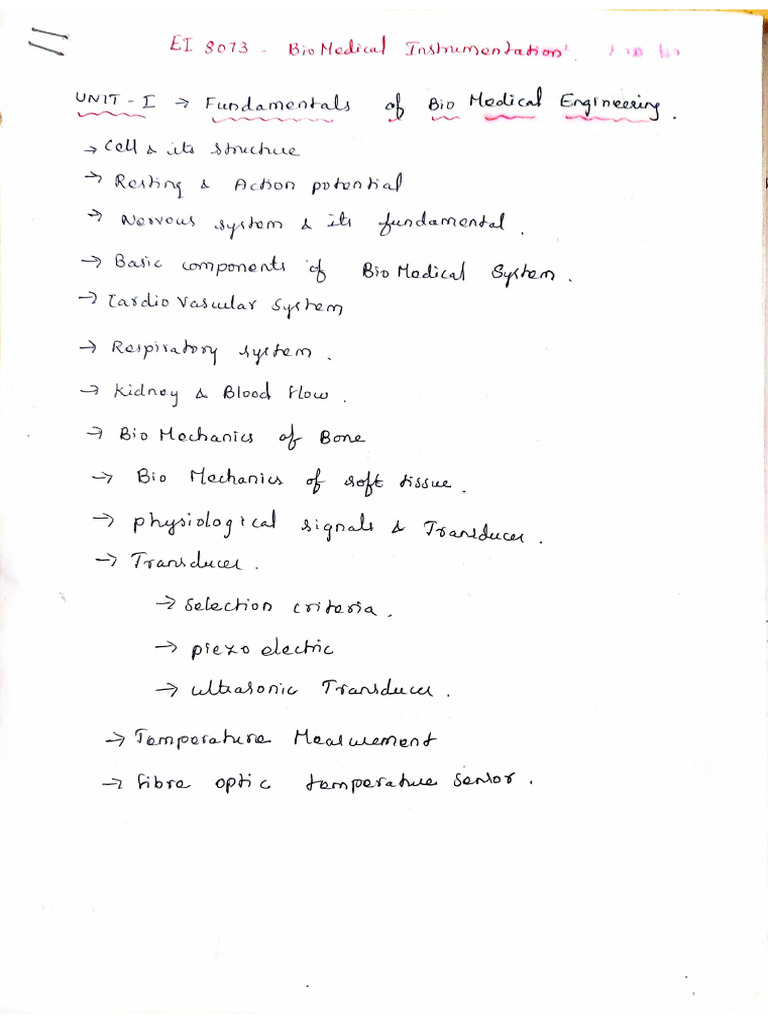 EI 8073 - BioMedical Instrumentation
UNIT - I → Fundamentals of Bio Medical Engineering.
→ Cell & its structure
→ Resting & Action potential
→ Nervous system & its fundamental.
→ Basic components of BioMedical System.
→ Cardio Vascular System
→ Respiratory system.
→ Kidney & Blood Flow.
→ Bio Mechanics of Bone
→ Bio Mechanics of soft tissue.
→ physiological signals & Transducer.
→ Transducer.
→ selection criteria.
→ piezo electric
→ ultrasonic Transducer.
→ Temperature Measurement
→ fibre optic temperature sensor.